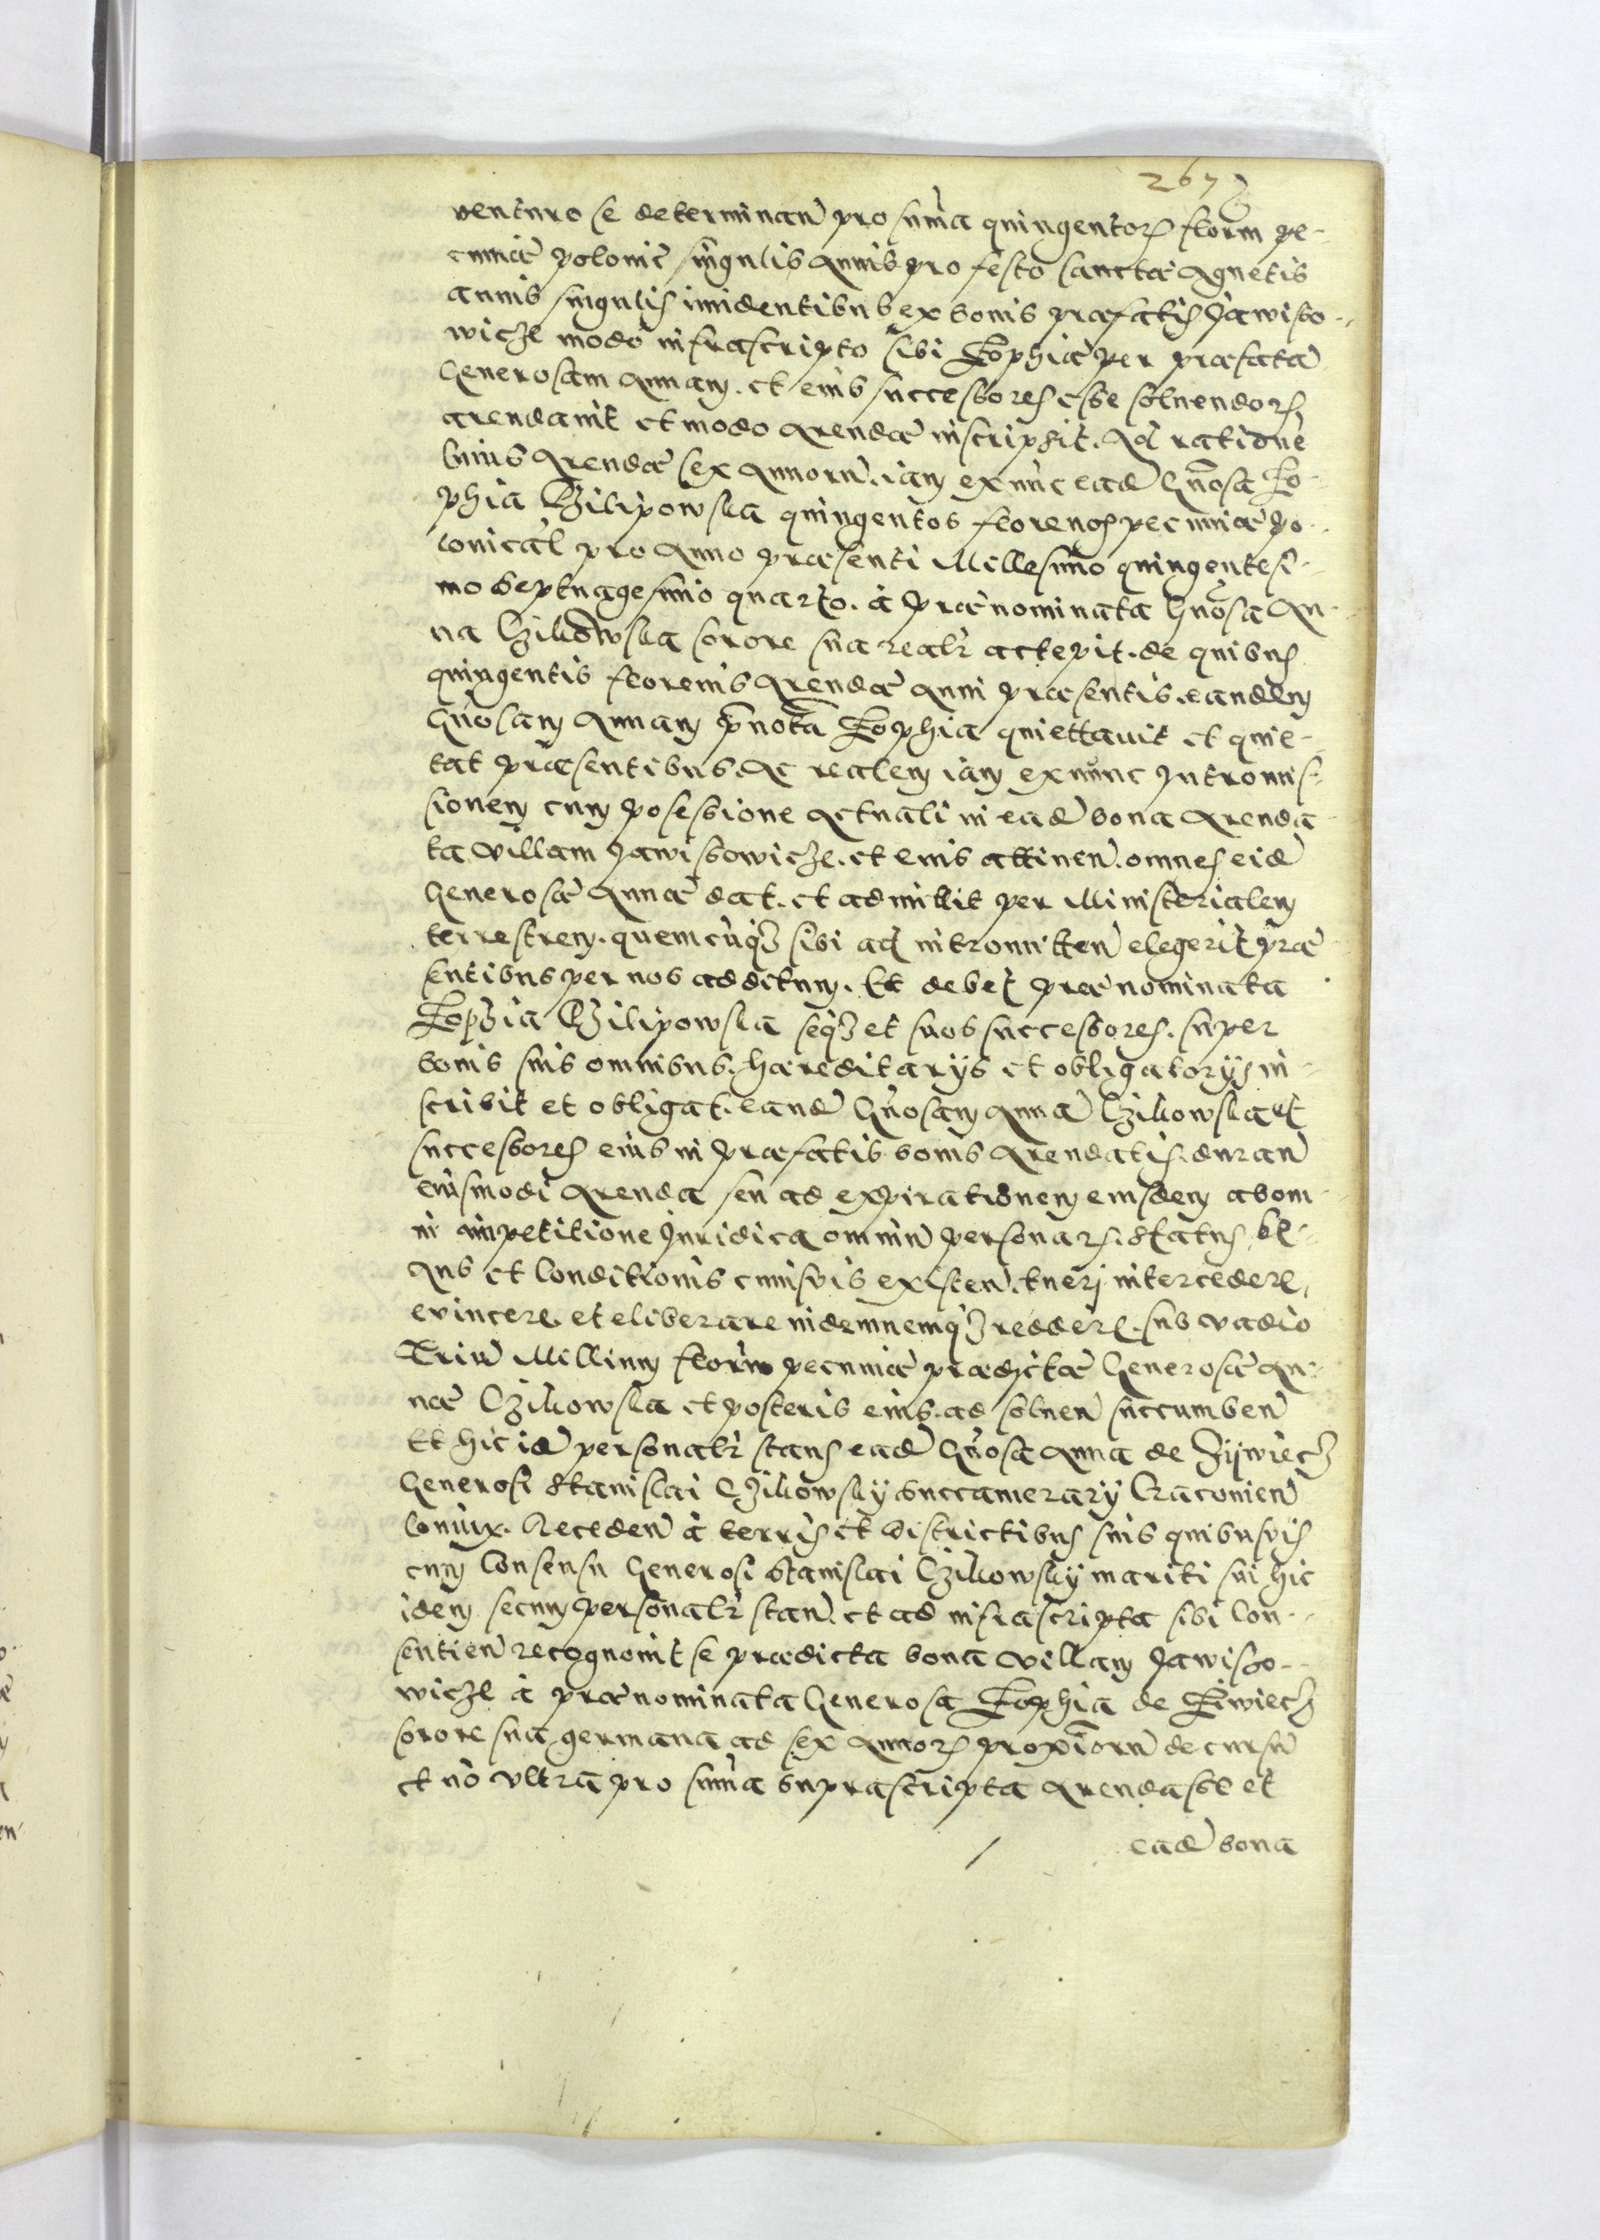 267
venturo se determinan̄ pro sum̄a quingentorꝝ floren̄ pe-
cuniæ polonic̄ singulis Annis pro festo sanctæ Agnetis
annis singulis incidentibus ex bonis præfatis Jawiszo-
wicze modo infrascripto sibi Zophiæ per præfatā
Generosam Annam. et eius successores esse soluendorꝝ
arendauit et modo Arendæ inscripsit. Ad rationē
huius Arendæ sex Annorū. iam ex nūc eadē Gn̄osa Zo-
phia Philipowska quingentos florenos pecuniæ po-
lonical̄ pro Anno præsenti Millesimo quingentesi-
mo Septuagesimo quarto. à prænominata Gn̄osa An-
na Czikowska sorore sua realr̄ accepit. de quibus
quingentis florenis Arendæ Anni præsentis. eandem
Gn̄osam Annam p̄nota Zophia quiettauit et quie-
tat præsentibus. Ac realem iam ex nunc Intromis-
sionem cum posessione Actuali in eadē bona Arenda-
ta Villam Jawissowicze. et eius attinen̄. omnes eidē
Generosæ Annæ dat. et admittit per Ministerialem
terrestrem. quemcūqꝫ sibi ad intromitten̄ elegerit præ-
sentibus per nos additum. Et debet prænominata
Zophia Philipowska seqꝫ et suos successores. super
bonis suis omnibus. hæreditarijs et obligatorijs in-
scribit et obligat. eandē Gn̄osam Annā Czikowska et
successores eius in præfatis bonis Arendatis. duran̄
eiusmodi Arenda seu ad expirationem eiusdem ab om-
ni impetitione Juridica omniū personarꝝ. status
et Conditionis cuiusvis existen̄. tueri intercedere,
evincere. et eliberare indemnemqꝫ reddere. sub vadio
Triū Millium florn̄ pecuniæ prædictæ Generosæ An-
næ Czikowska et posteris eius. ad soluen̄ succumben̄
Et hic idē personalr̄ stans eadē Gn̄osa Anna de Zÿwiecz
Generosi Stanislai Czikowskÿ Succamerarÿ Cracouien̄
Coniūx. Receden̄ à terris et districtibus suis quibusvis
cum Consensu Generosi Stanislai Czikowskÿ mariti sui hic
idem secum personalr̄ stan̄. et ad infrascripta sibi Con-
sentien̄ recognouit se prædicta bona Villam Jawiszo-
wicze à prænominata Generosa Zophia de Ziwiecz
sorore sua germana ad sex Annorꝝ proximorū decursū
et nō vltra pro sum̄a supra scripta Arendasse et
eadē bona